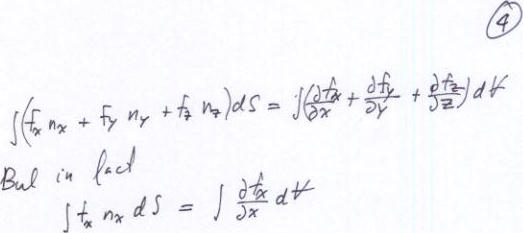 4
∫(f_x n_x + f_y n_y + f_z n_z) dS = ∫(∂f_x/∂x + ∂f_y/∂y + ∂f_z/∂z) dV
But in fact
∫ f_x n_x dS = ∫ ∂f_x/∂x dV